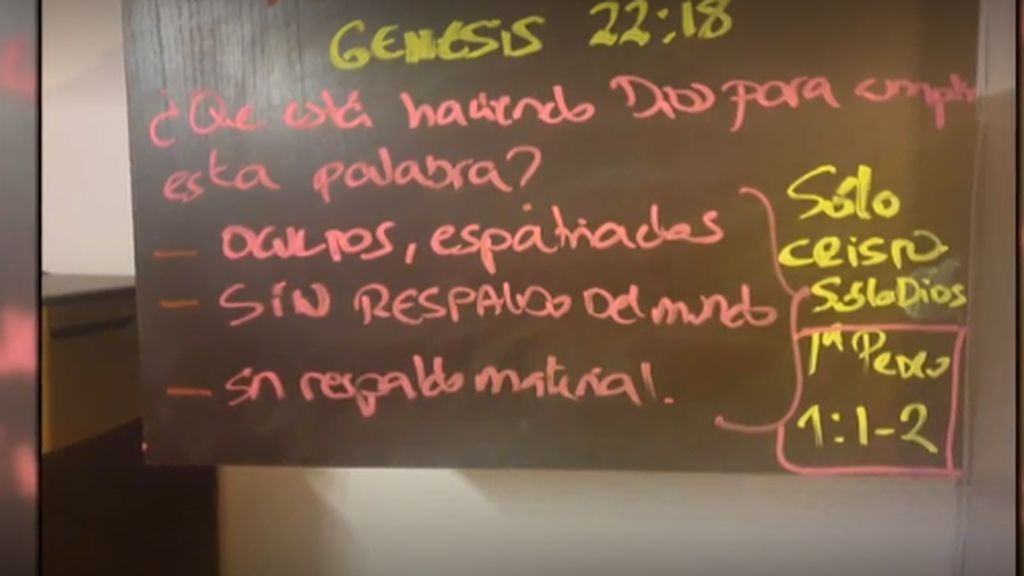 GENESIS 22:18
¿Que está haciendo Dios para cumplir
esta palabra?
— OCULTOS, espátriados
— SIN RESPALDO Del mundo
— sin respaldo material.
Sólo
CRISTO
Sólo Dios
1ª Pedro
1:1-2